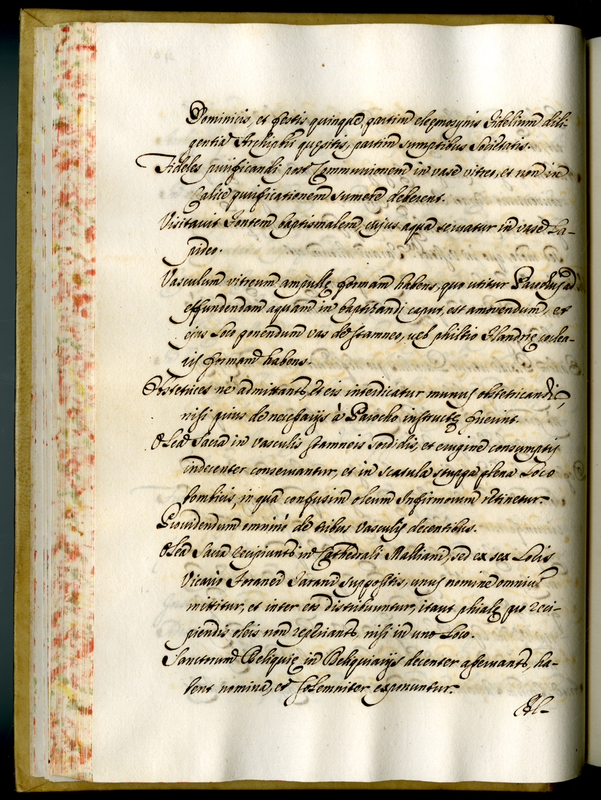 Dominicis, et festis quinque, partim eleemosynis Fidelium dili-
gentia Archipbri quesitis, partim sumptibus Societatis.
Fideles purificandi post Communionem in vase vitreo, et non in
Calice purificationem sumere deberent.
Visitavit Fontem baptismalem, cujus aqua servatur in vase la-
pideo.
Vasculum vitreum ampullę formam habens, quo utitur Parochus ad
effundendam aquam in baptizandi caput, est amovendum, et
ejus loco ponendum vas de stamneo, vel
formam habens.
Obstetrices ne admittant, et eis interdicatur munus obstetricandi,
nisi prius de necessarijs à Parocho instructę fuerint.
Olea Sacra in vasculis stamneis sordidis, et erugine consumptis
indecenter conservantur, et in scatula stuppa plena loco
bombicis, in qua confusim oleum Infirmorum retinetur.
Providendum omnino de tribus vasculis decentibus.
Olea Sacra recipiunt in Cathedrali, sed ex sex Locis
Vicario Foraneo suppositis, unus nomine omnium
mittitur, et inter eos distribuuntur, itaut phialę pro reci-
piendis oleis non reperiant, nisi in uno loco.
Sanctorum Reliquię in Reliquiarijs decenter asservant, ha-
bent nomina, et solemniter exponuntur.